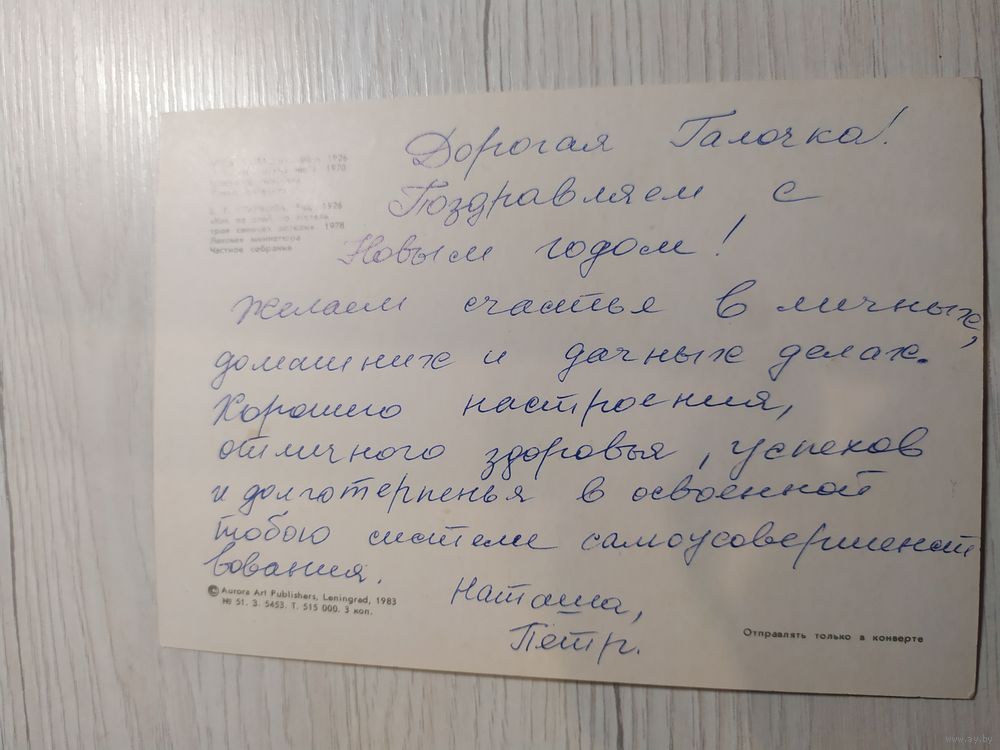 1926
1970
1926
1978
Лаковая миниатюра
Частное собрание
Дорогая Галочка!
Поздравляем с
Новым годом!
Желаем счастья в личных,
домашних и дачных делах.
Хорошего настроения,
отличного здоровья, успехов
и долготерпенья в освоенной
тобою системе самоусовершенст
вования.
Наташа,
Пётр.
© Aurora Art Publishers, Leningrad, 1983
№ 51. З. 5453. Т. 515 000. 3 коп.
Отправлять только в конверте
www.ay.by